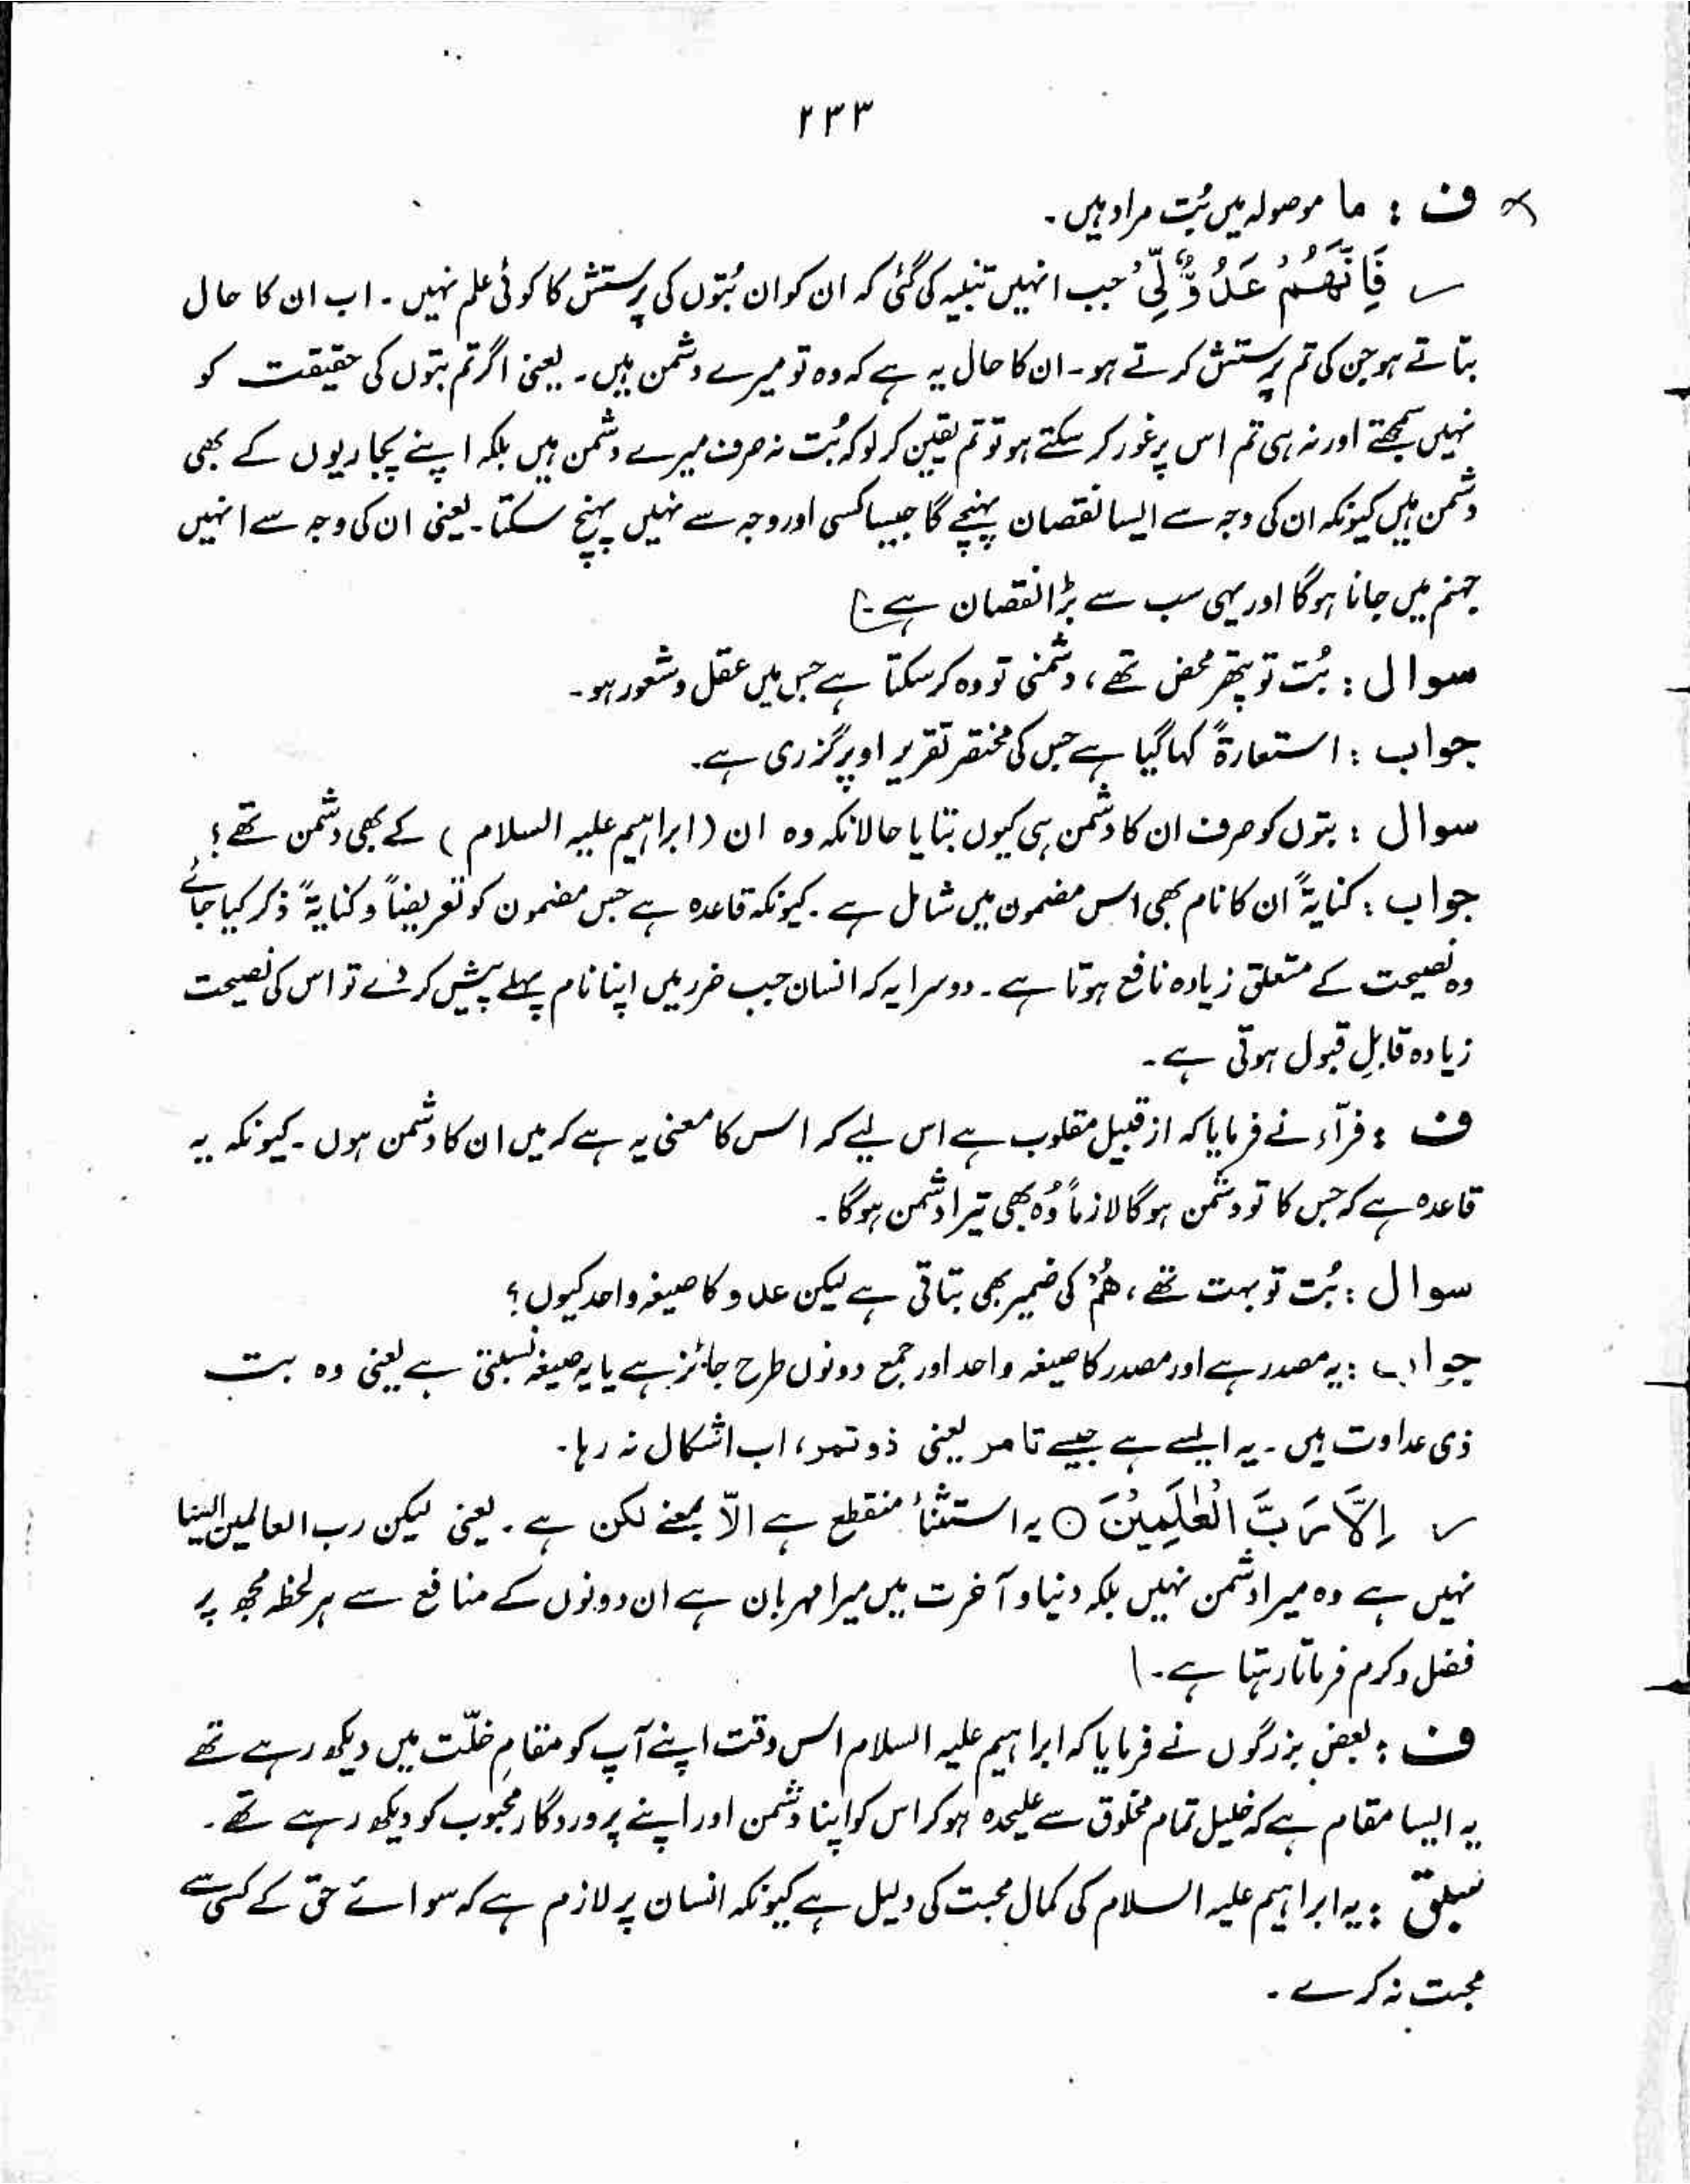 ۲۳۳
ف : ما موصولہ میں بُت مراد ہیں ۔
فَاِنَّهُمْ عَدُوٌّ لِّیْ جب انہیں تنبیہ کی گئی کہ ان کو ان بُتوں کی پرستش کا کوئی علم نہیں ۔ اب ان کا حال
بتاتے ہو جن کی تم پرستش کرتے ہو ۔ ان کا حال یہ ہے کہ وہ تو میرے دشمن ہیں ۔ یعنی اگر تم بتوں کی حقیقت کو
نہیں سمجھتے اور نہ ہی تم اس پر غور کر سکتے ہو تو تم یقین کر لو کہ بُت نہ صرف میرے دشمن ہیں بلکہ اپنے پجاریوں کے بھی
دشمن ہیں کیونکہ ان کی وجہ سے ایسا نقصان پہنچے گا جیسا کسی اور وجہ سے نہیں پہنچ سکتا ۔ یعنی ان کی وجہ سے انہیں
جہنم میں جانا ہو گا اور یہی سب سے بڑا نقصان ہے ۔
سوال : بُت تو پتھر محض تھے ، دشمنی تو وہ کر سکتا ہے جس میں عقل و شعور ہو ۔
جواب : استعارۃً کہا گیا ہے جس کی مختصر تقریر اوپر گزری ہے ۔
سوال : بتوں کو صرف ان کا دشمن ہی کیوں بتایا حالانکہ وہ ان ( ابراہیم علیہ السلام ) کے بھی دشمن تھے ؟
جواب : کنایۃً ان کا نام بھی اس مضمون میں شامل ہے ۔ کیونکہ قاعدہ ہے جس مضمون کو تعریضاً و کنایۃً ذکر کیا جائے
وہ نصیحت کے متعلق زیادہ نافع ہوتا ہے ۔ دوسرا یہ کہ انسان جب ضرر میں اپنا نام پہلے پیش کر دے تو اس کی نصیحت
زیادہ قابلِ قبول ہوتی ہے ۔
ف : فرّاء نے فرمایا کہ از قبیل مقلوب ہے اس لیے کہ اس کا معنی یہ ہے کہ میں ان کا دشمن ہوں ۔ کیونکہ یہ
قاعدہ ہے کہ جس کا تو دشمن ہو گا لازماً وُہ بھی تیرا دشمن ہو گا ۔
سوال : بُت تو بہت تھے ، ھُمْ کی ضمیر بھی بتاتی ہے لیکن عدو کا صیغہ واحد کیوں ؟
جواب : یہ مصدر ہے اور مصدر کا صیغہ واحد اور جمع دونوں طرح جائز ہے یا یہ صیغہ نسبتی ہے یعنی وہ بت
ذی عداوت ہیں ۔ یہ ایسے ہے جیسے تامر یعنی ذو تمر ، اب اشکال نہ رہا ۔
اِلَّا رَبَّ الْعٰلَمِیْنَ ○ یہ استثناء منقطع ہے الاّ بمعنے لکن ہے ۔ یعنی لیکن رب العالمین ایسا
نہیں ہے وہ میرا دشمن نہیں بلکہ دنیا و آخرت میں میرا مہربان ہے ان دونوں کے منافع سے ہر لحظہ مجھ پر
فضل و کرم فرماتا رہتا ہے ۔
ف : بعض بزرگوں نے فرمایا کہ ابراہیم علیہ السلام اس وقت اپنے آپ کو مقامِ خلّت میں دیکھ رہے تھے
یہ ایسا مقام ہے کہ خلیل تمام مخلوق سے علیحدہ ہو کر اس کو اپنا دشمن اور اپنے پروردگار محبوب کو دیکھ رہے تھے ۔
سبق : یہ ابراہیم علیہ السلام کی کمال محبت کی دلیل ہے کیونکہ انسان پر لازم ہے کہ سوائے حق کے کسی سے
محبت نہ کرے ۔